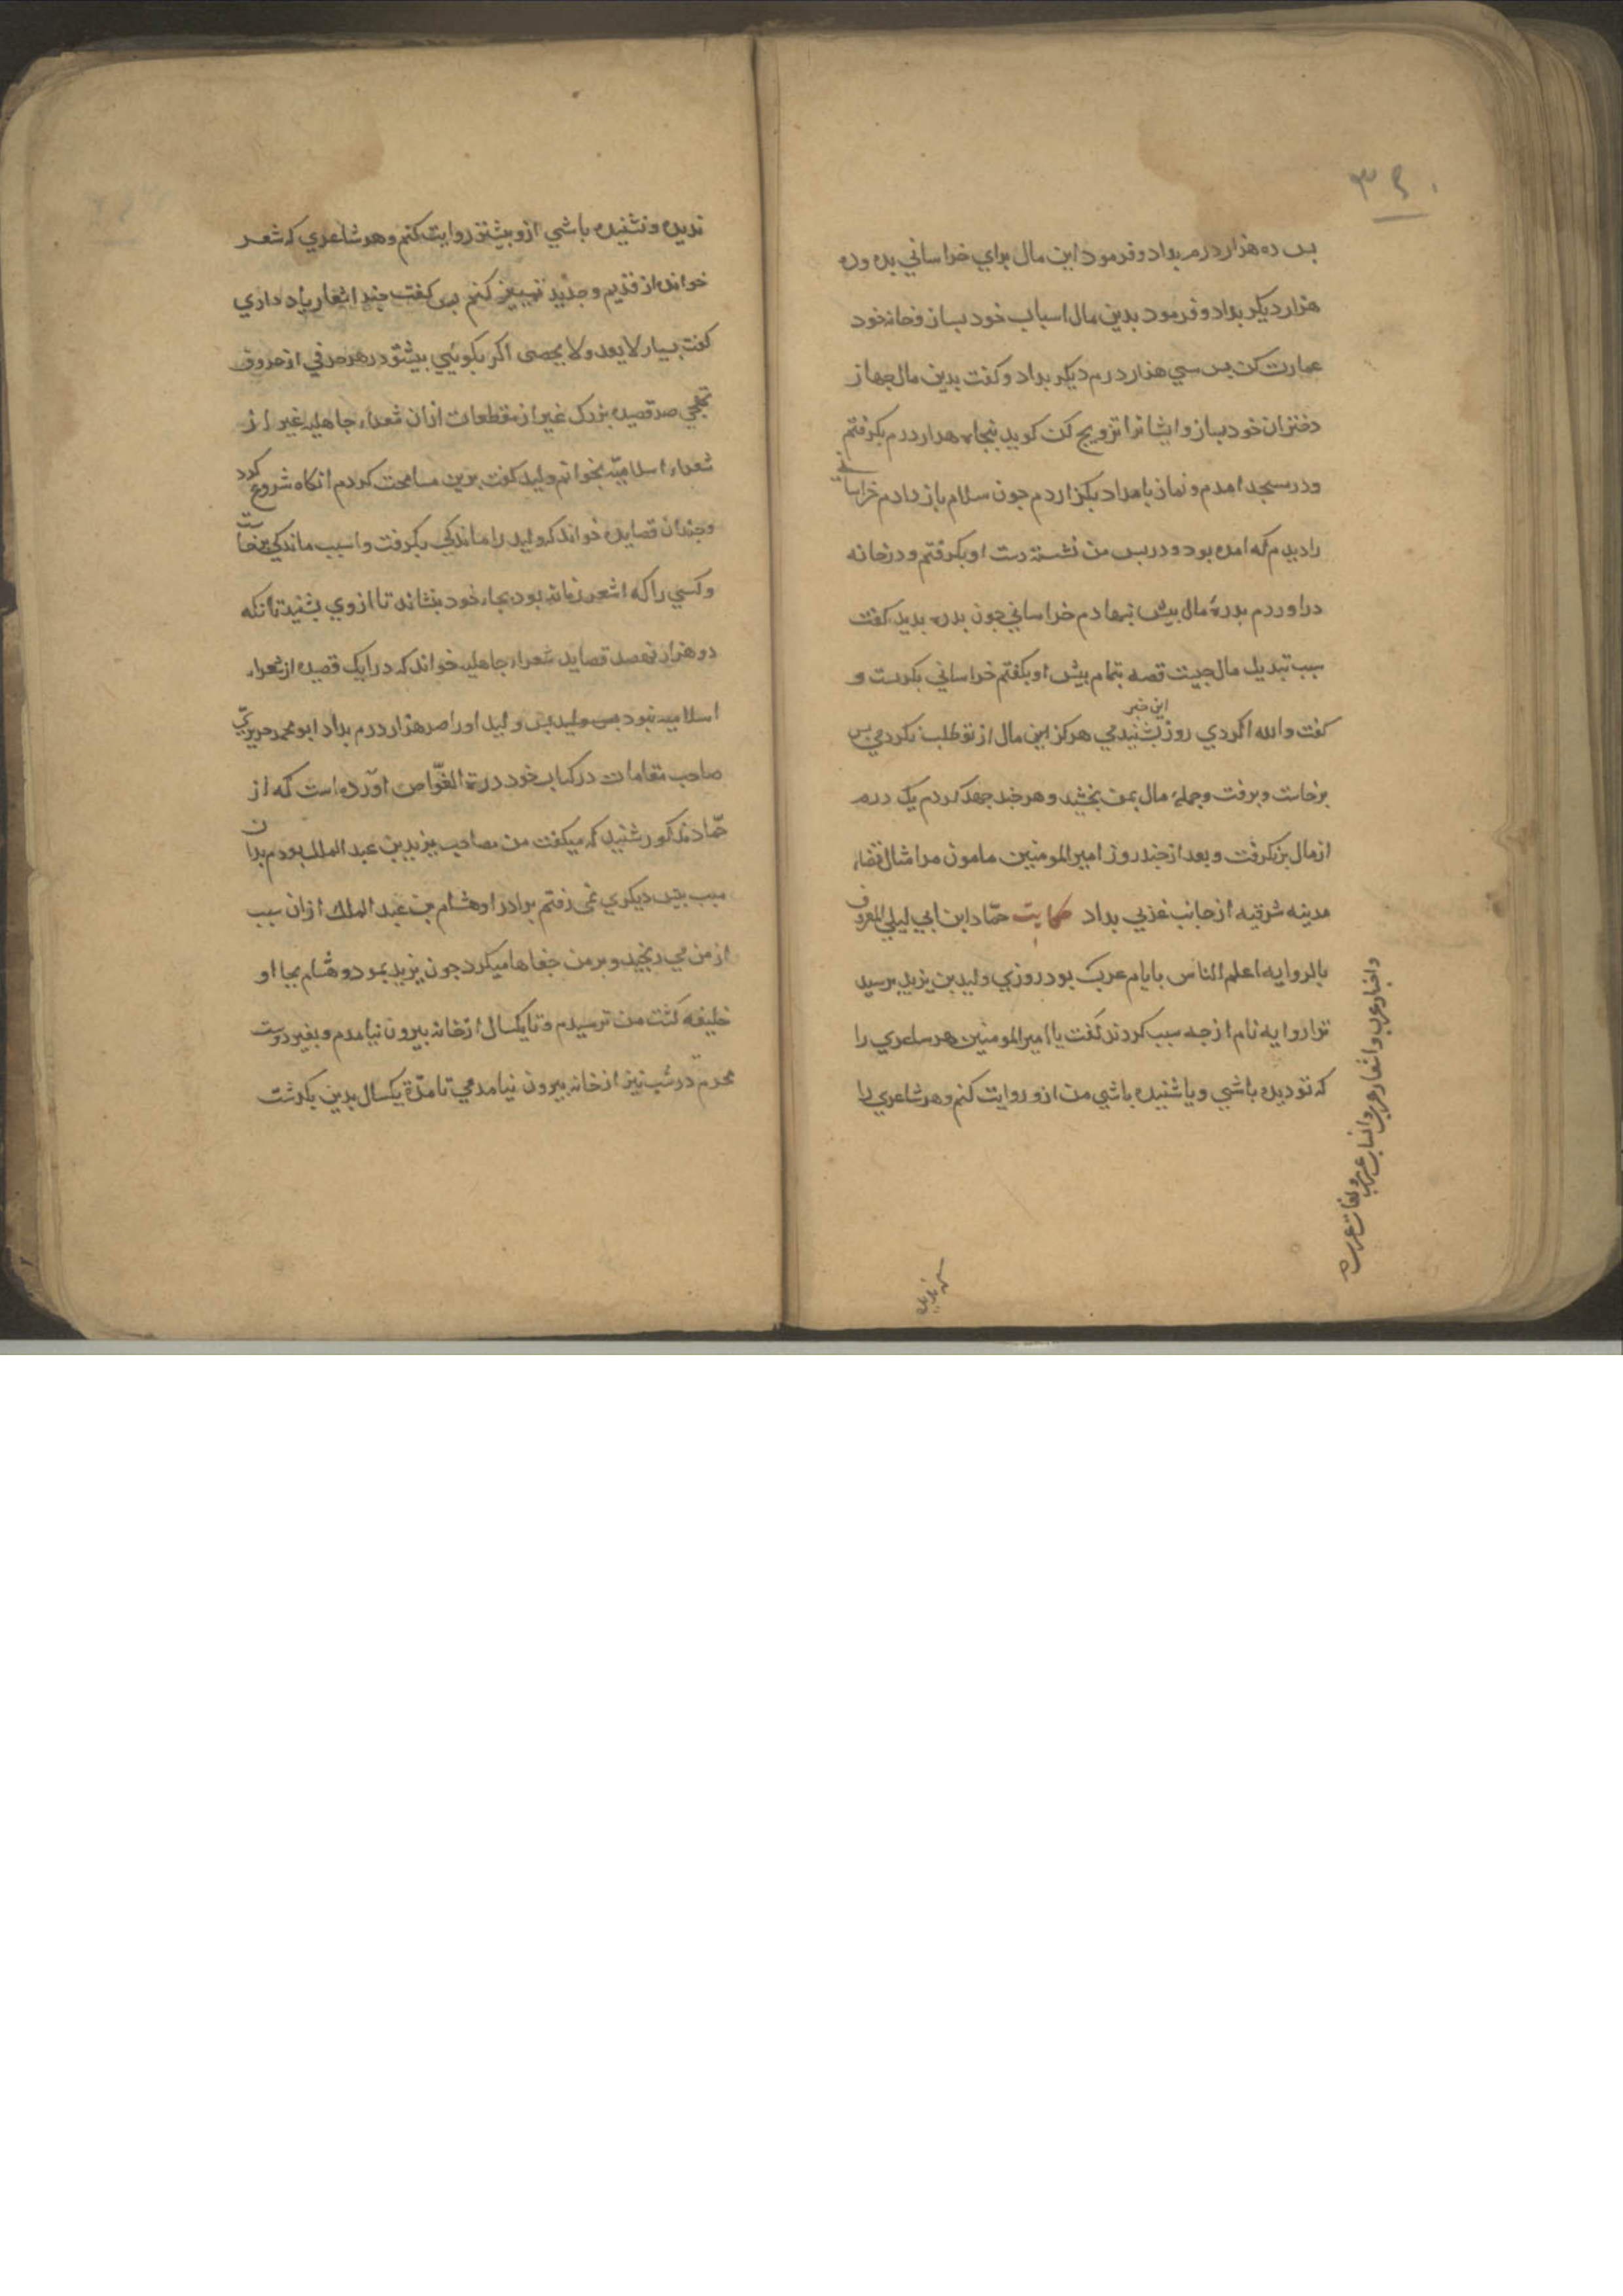 ۳۹۰
بس ده هزار درم بداد و فرمود این مال برای خراسانی بده و ده
هزار دیکر بداد و فرمود بدین مال اسباب خود بساز و خانه خود
عمارت کن بس سی هزار درم دیکر بداد و کفت بدین مال جهاز
دختران خود بساز و ایشانرا تزویج کن کوید پنجاه هزار درم بکرفتم
و در مسجد امدم و نماز بامداد بکزاردم جون سلام باز دادم خراسانی
را دیدم که امده بود و در بس من نشسته دست او بکرفتم و در خانه
در اوردم بدرۀ مال بیش نهادم خراسانی جون بدره بدید کفت
سبب تبدیل مال جیست قصه بتمام بیش او بکفتم خراسانی بکریست و
کفت والله اکر دی روز این خبر بشنیدمی هرکز این مال از تو طلب نکردمی بس
برخاست و برفت و جملۀ مال بمن بخشید و هر جند جهد کردم یک درم
از مال بر نکرفت و بعد از جند روز امیر المومنین مامون مرا مثال قضاء
مدینه شرقیه از جانب غربی بداد حکایت حمّاد ابن ابی لیلی المعروف
بالروایه اعلم الناس بایام عرب بود روزی ولید بن یزید برسید
ترا روایه نام از جه سبب کردند کفت یا امیر المومنین هر شاعری را
که تو دیده باشی و یا شنیده باشی من ازو روایت کنم و هر شاعری را
و اخبار عرب و اشعار عرب و انساب عرب و لغات عرب
ندیده و نشنیده باشی ازو بیشتر روایت کنم و هر شاعری که شعر
خواند از قدیم و جدید تمییز کنم بس کفت جند اشعار یاد داری
کفت بسیار لا یعد و لا یحصی اکر بکویی بیش تو در هر حرفی از حروف
تهجی صد قصیده بزرک غیر از مقطعات ازان شعراء جاهلیه غیر از
شعراء اسلامیّه بخوانم ولید کفت برین مسامحت کردم انکاه شروع کرد
و جندان قصایده خواند که ولید را ماندکی بکرفت و اسبب ماندکی برخاست
و کسی را که اشعر زمانه بود بجاء خود بنشاند تا ازوی بشنید تا انکه
دو هزار نهصد قصاید شعراء جاهلیه خواند که درا یک قصیده از شعراء
اسلامیه نبود بس ولید بس ولید اورا صد هزار درم بداد ابو محمد حریری
صاحب مقامات در کتاب خود درة الغوّاص اورده است که از
حمّاد مذکور شنید که میکفت من مصاحب یزید بن عبد الملک بودم بدان
سبب بیش دیکری نمی رفتم برادر او هشام بن عبد الملک ازان سبب
از من می رنجید و بر من جفاها میکرد جون یزید بمرد و هشام بجا او
خلیفه کشت من ترسیدم و تا یکسال از خانه بیرون نیامدم و بغیر دوست
محرم در شب نیز از خانه بیرون نیامدمی تا مدّة یکسال بدین بکذشت